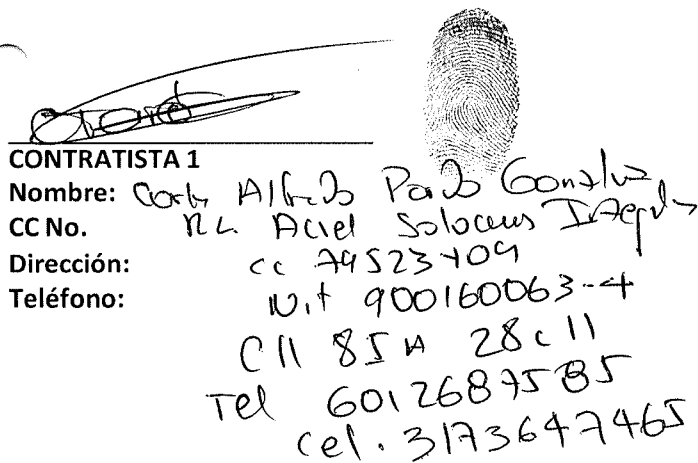 CONTRATISTA 1
Nombre: Carlos Alfredo Pardo Gonzalez
CC No. RL Aciel Soluciones Integrales
Dirección: cc 79523409
Teléfono: Nit 900160063-4
Cll 85 A 28 c 11
Tel 6012687585
Cel. 3173647465